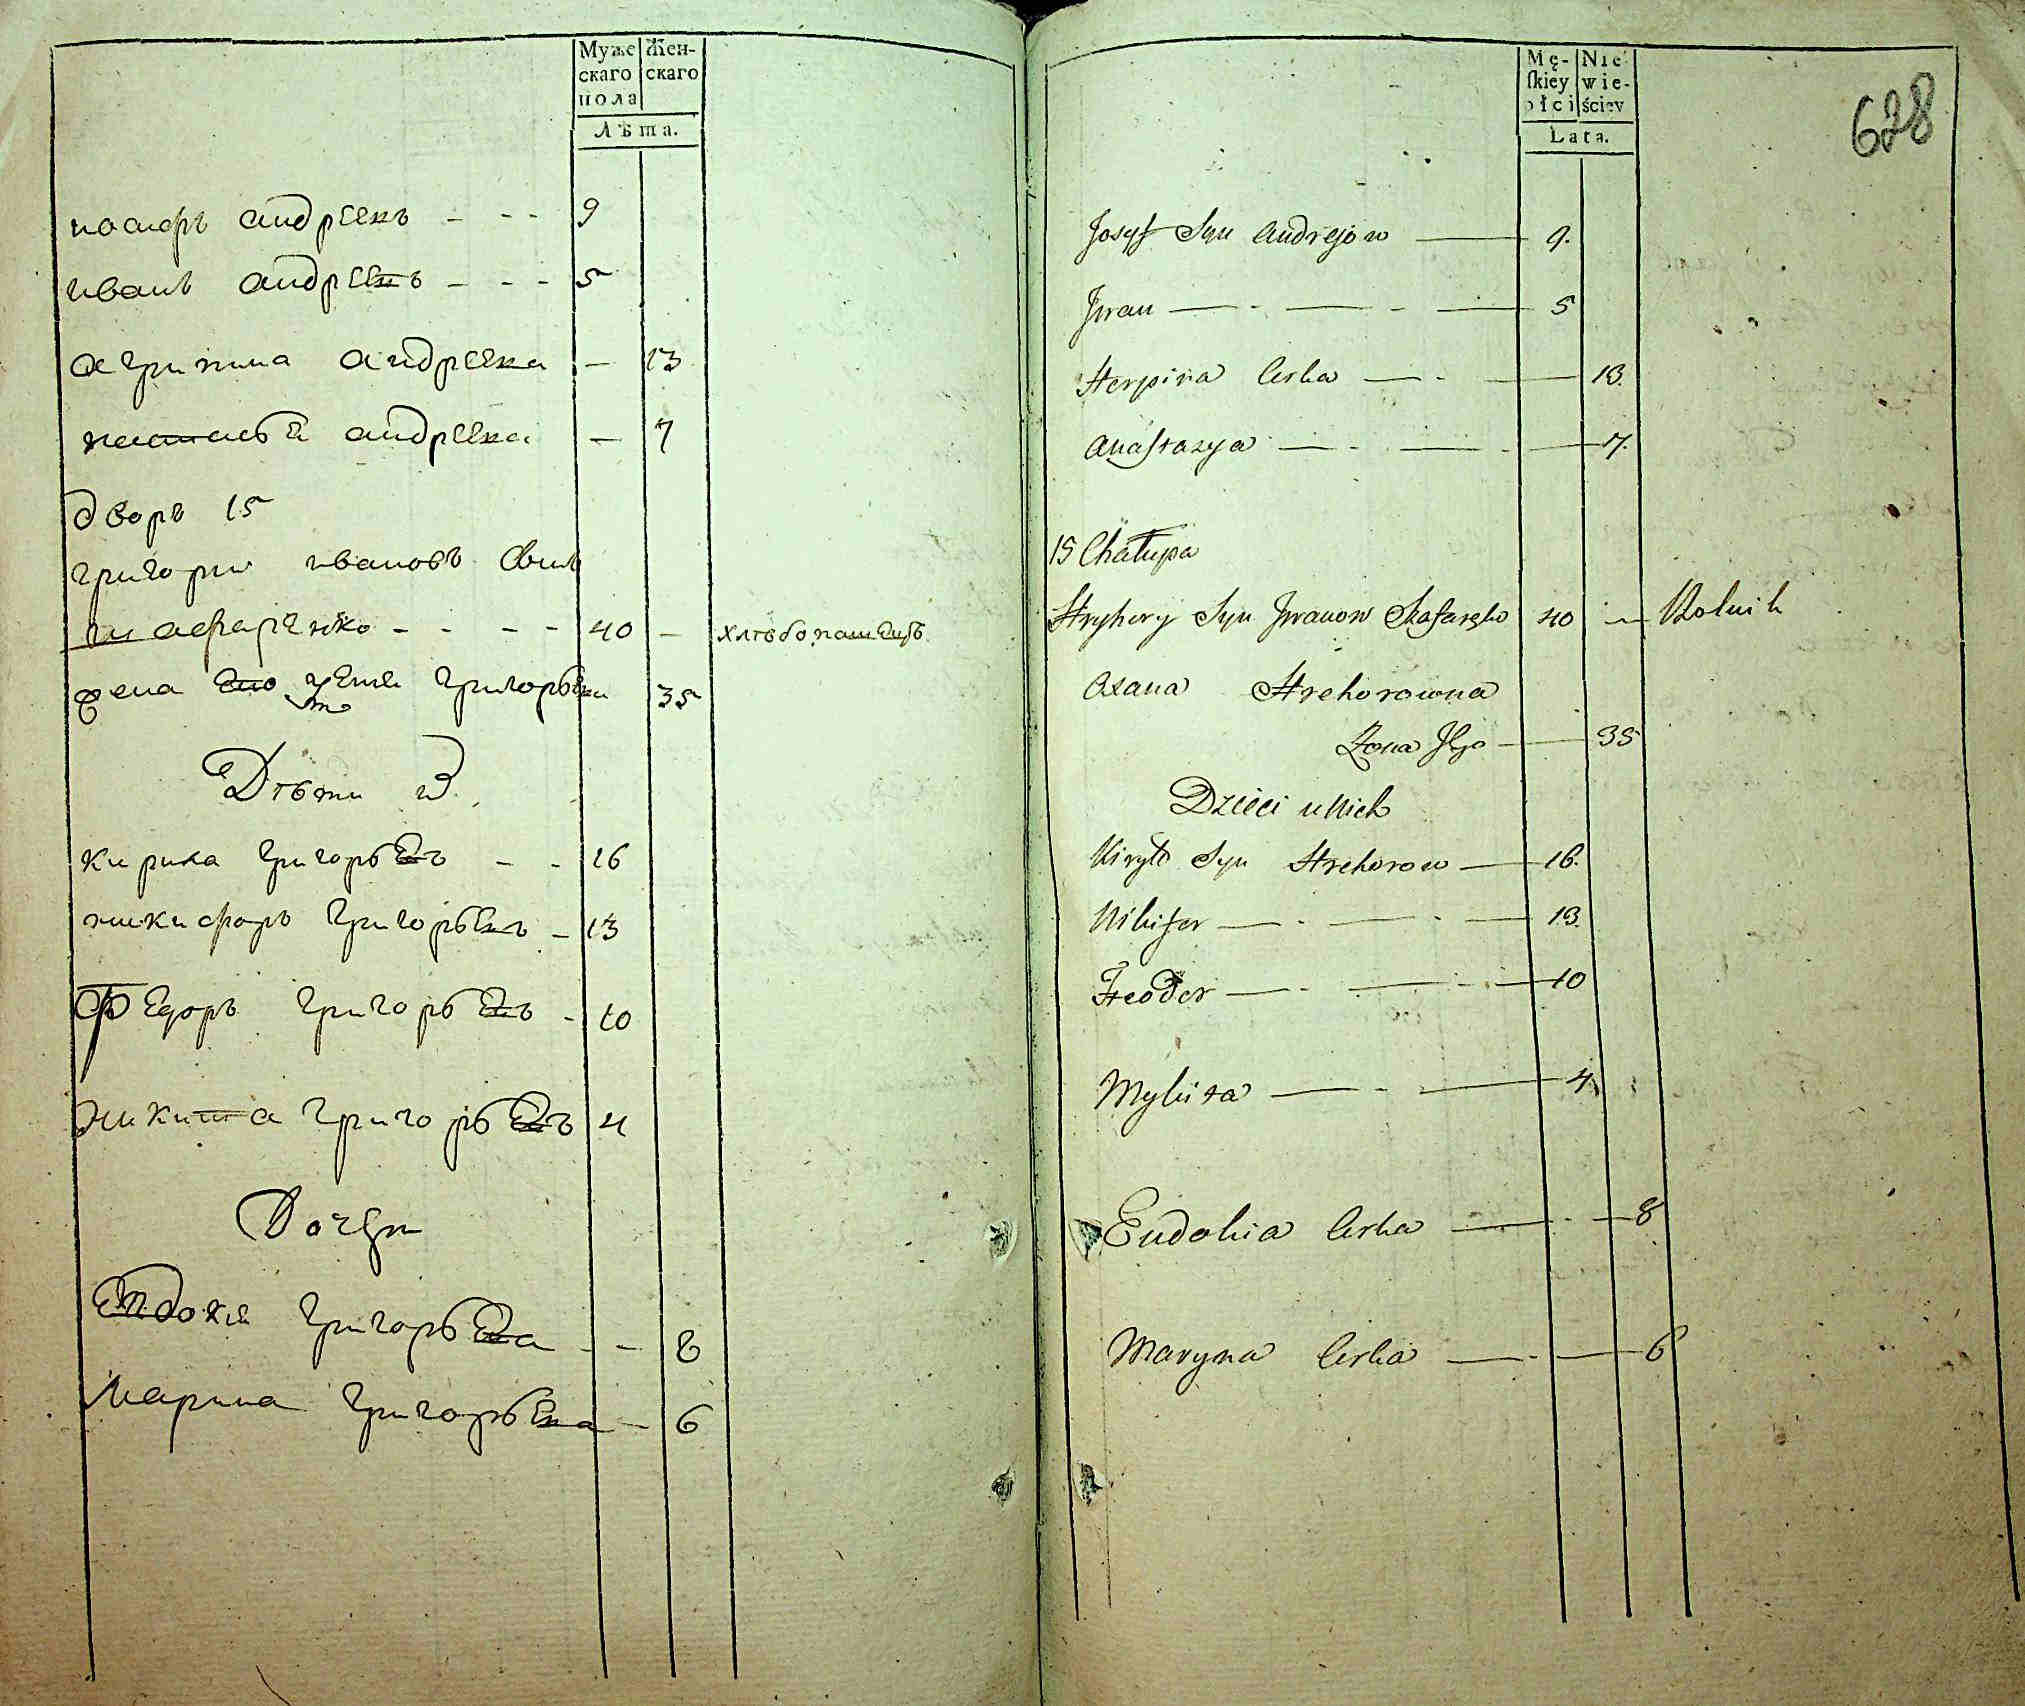 Муже
скаго
пола
Жен-
скаго
Лѣта.
иосифъ андреевъ - - - 9
иванъ андреевъ - - - 5
агрипина андреева - 13
настасья андреева - 7
дворъ 15
григорий ивановъ сынъ
- - - - 40 - хлѣбопашецъ
жена его григорьева 35
Дѣти
кирила григорьевъ - - 16
никифоръ григорьевъ - 13
Федоръ григорьевъ - 10
никита григорьевъ 4
Дочери
Евдокия григорьева - - 8
Марина григорьева - 6
Mę-
skiey
płci
Nie
wie-
ściey
Lata.
628
Josyf Syn Andrejow 9.
Jwan 5
Herpina Corka 13.
Anastazya 7.
15 Chałupa
Hryhory Syn Jwanow 40 Rolnik
Oxana Hrehorowna
Zona Jego 35
Dzieci u Nich
Kiryło Syn Hrehorow 16.
Nikifor 13.
Feodor 10
Mykita 4
Eudokia Corka 8
Maryna Corka 6